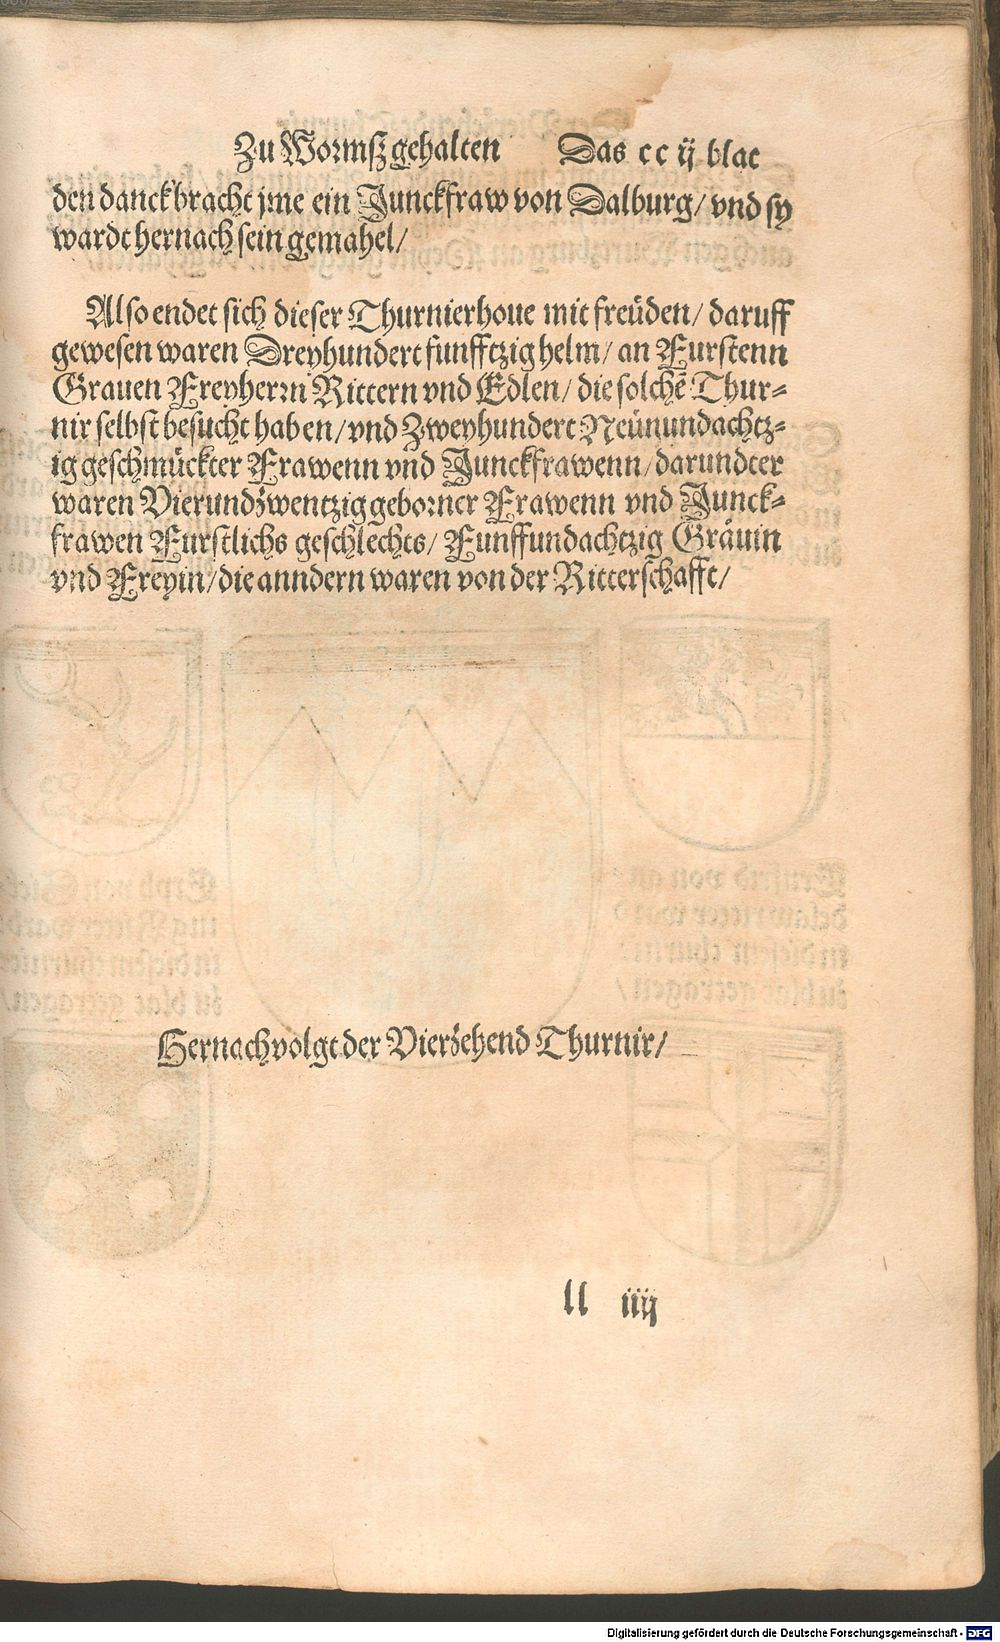 Zu Wormß gehalten Das cc ij blat
den danck bracht jme ein Junckfraw von Dalburg/ vnd sy
wardt hernach sein gemahel/
Also endet sich dieser Thurnierhoue mit freüden/ daruff
gewesen waren Dreyhundert funfftzig helm/ an Furstenn
Grauen Freyherrn Rittern vnd Edlen/ die solchē Thur-
nir selbst besucht haben/ vnd Zweyhundert Neünundachtz-
ig geschmückter Frawenn vnd Junckfrawenn/ darundter
waren Vierundzwentzig geborner Frawenn vnd Junck-
frawen Furstlichs geschlechts/ Funffundachtzig Gräuin
vnd Freyin/ die anndern waren von der Ritterschafft/
Hernach volgt der Vierzehend Thurnir/
ll iiij
Digitalisierung gefördert durch die Deutsche Forschungsgemeinschaft - DFG